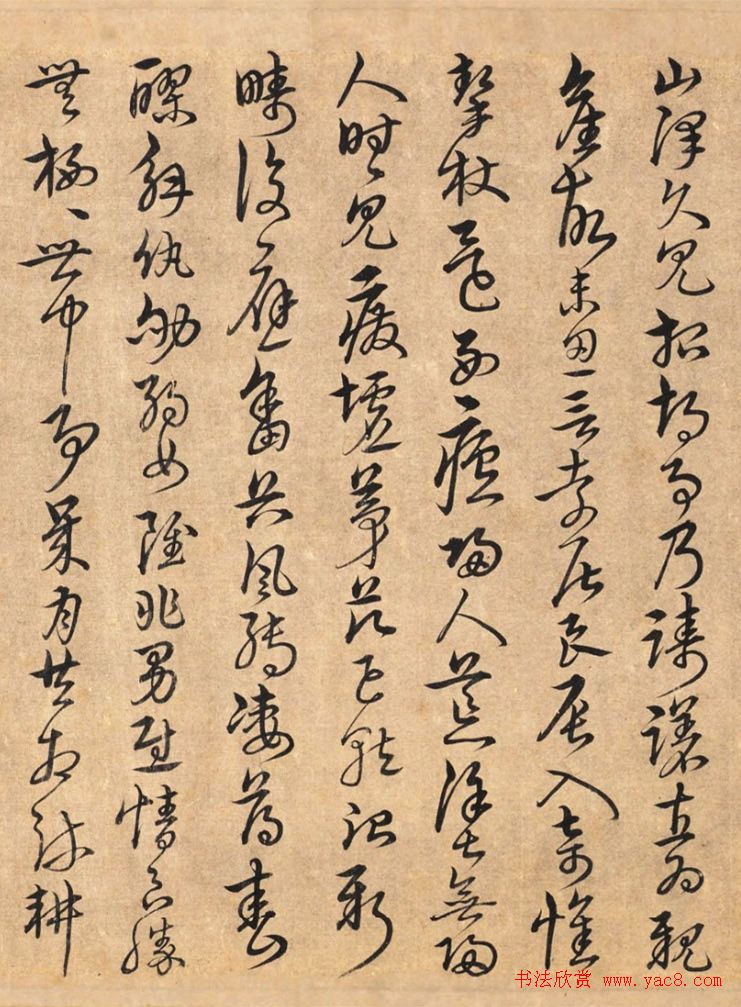 山澤久見招胡事乃躊躇直為親
舊故未忍言索居良辰入奇懷
挈杖還西廬歸人荒塗無歸
人時〻見廢墟茅茨已就治新
疇復應畬谷風轉淒薄春
醪解飢劬弱女雖非男慰情良勝
無栖〻世中事歲月共相疎耕
书法欣赏 www.yac8.com